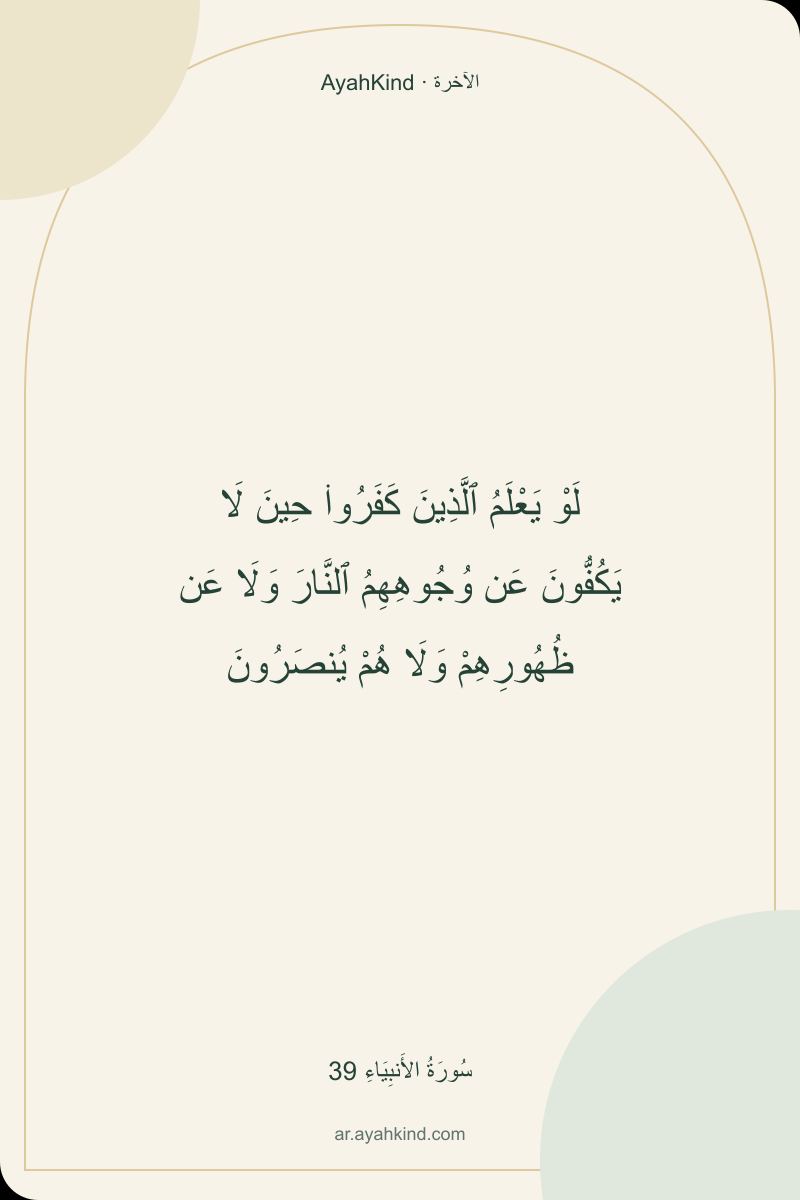 AyahKind · الآخرة
لَوْ يَعْلَمُ ٱلَّذِينَ كَفَرُوا۟ حِينَ لَا
يَكُفُّونَ عَن وُجُوهِهِمُ ٱلنَّارَ وَلَا عَن
ظُهُورِهِمْ وَلَا هُمْ يُنصَرُونَ
سُورَةُ الأَنبِيَاءِ 39
ar.ayahkind.com